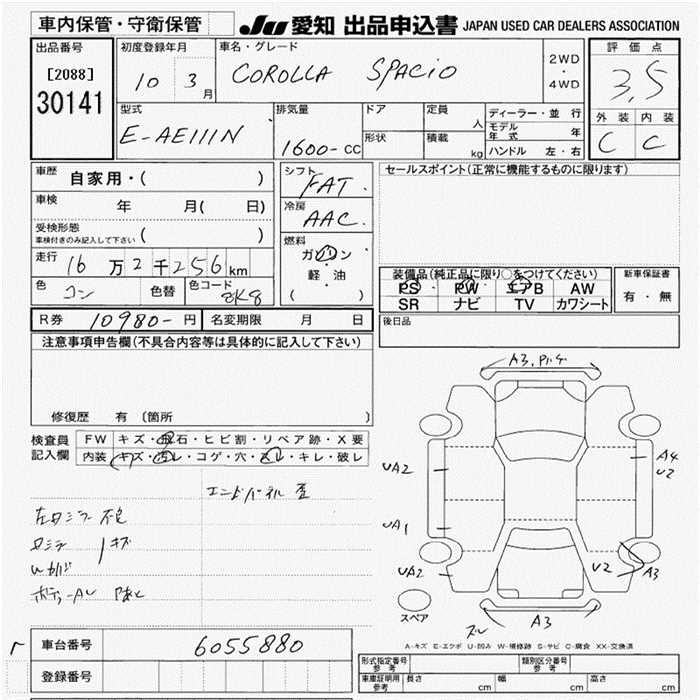 車内保管・守衛保管
JU 愛知 出品申込書 JAPAN USED CAR DEALERS ASSOCIATION
出品番号
[2088]
30141
初度登録年月
10 3 月
車名・グレード
COROLLA SPACIO
2WD
・
4WD
評価点
3,5
外装 内装
C C
型式
E-AE111N
排気量
1600-CC
ドア
形状
定員 人
積載 kg
ディーラー・並行
モデル年式 年
ハンドル 左・右
車歴 自家用・( )
車検 年 月( 日)
受検形態
車検付きのみ記入して下さい ( )
走行 16万2千256km
色 コン 色替 色コード 8K8
シフト FAT.
冷房 AAC.
燃料
ガソリン
軽・油
( )
セールスポイント(正常に機能するものに限ります)
装備品(純正品に限り○をつけてください)
PS PW エアB AW
SR ナビ TV カワシート
新車保証書
有・無
R券 10980-円 名変期限 月 日
後日品
注意事項申告欄(不具合内容等は具体的に記入して下さい)
修復歴 有 (箇所 )
検査員記入欄
FW キズ・飛石・ヒビ割・リペア跡・X要
内装 キズ・汚レ・コゲ・穴・スレ・キレ・破レ
エンドパネル 歪
左ロミラー 不良
ロミラー キズ
A3,
UA2
UA1
UA2
A4
U2
U2
A3
スレ A3
スペア
A-キズ E-エクボ U-凹み W-補修跡 S-サビ C-腐食 XX-交換済
車台番号 6055880
登録番号
形式指定番号 参考
類別区分番号 参考
車庫証明用 参考 長さ cm 幅 cm 高さ cm